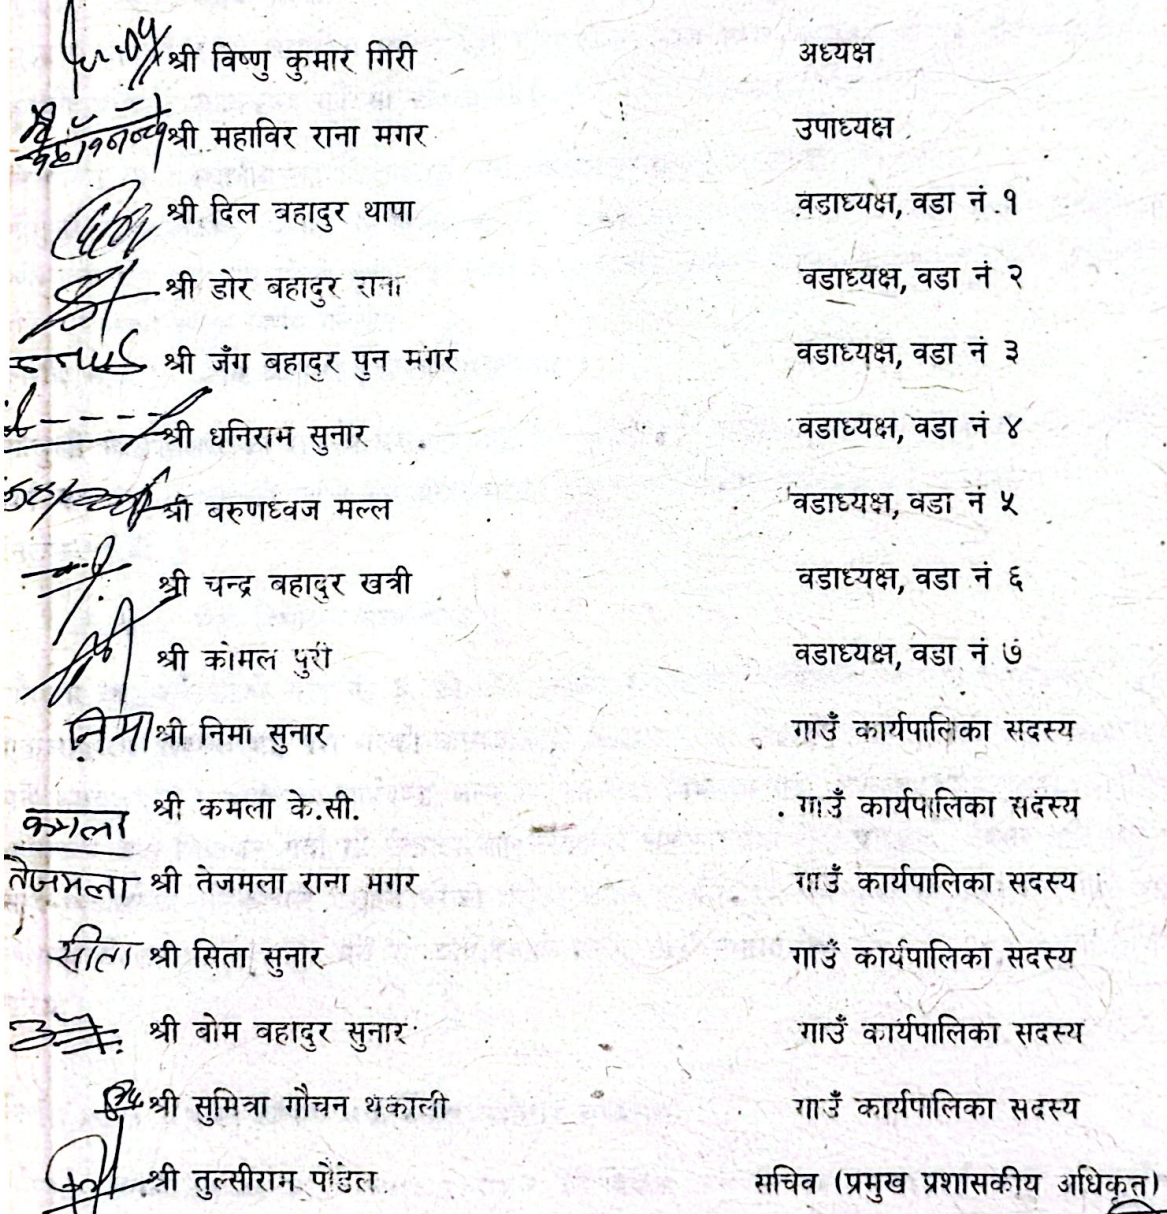 श्री विष्णु कुमार गिरी अध्यक्ष
श्री महाविर राना मगर उपाध्यक्ष
श्री दिल बहादुर थापा वडाध्यक्ष, वडा नं १
श्री डोर बहादुर राना वडाध्यक्ष, वडा नं २
श्री जँग बहादुर पुन मगर वडाध्यक्ष, वडा नं ३
श्री धनिराम सुनार वडाध्यक्ष, वडा नं ४
श्री वरुणध्वज मल्ल वडाध्यक्ष, वडा नं ५
श्री चन्द्र बहादुर खत्री वडाध्यक्ष, वडा नं ६
श्री कोमल पुरी वडाध्यक्ष, वडा नं ७
निमा श्री निमा सुनार गाउँ कार्यपालिका सदस्य
कमला श्री कमला के.सी. गाउँ कार्यपालिका सदस्य
तेजमला श्री तेजमला राना मगर गाउँ कार्यपालिका सदस्य
सीता श्री सिता सुनार गाउँ कार्यपालिका सदस्य
श्री बोम बहादुर सुनार गाउँ कार्यपालिका सदस्य
श्री सुमित्रा गौचन थकाली गाउँ कार्यपालिका सदस्य
श्री तुल्सीराम पौडेल सचिव (प्रमुख प्रशासकीय अधिकृत)